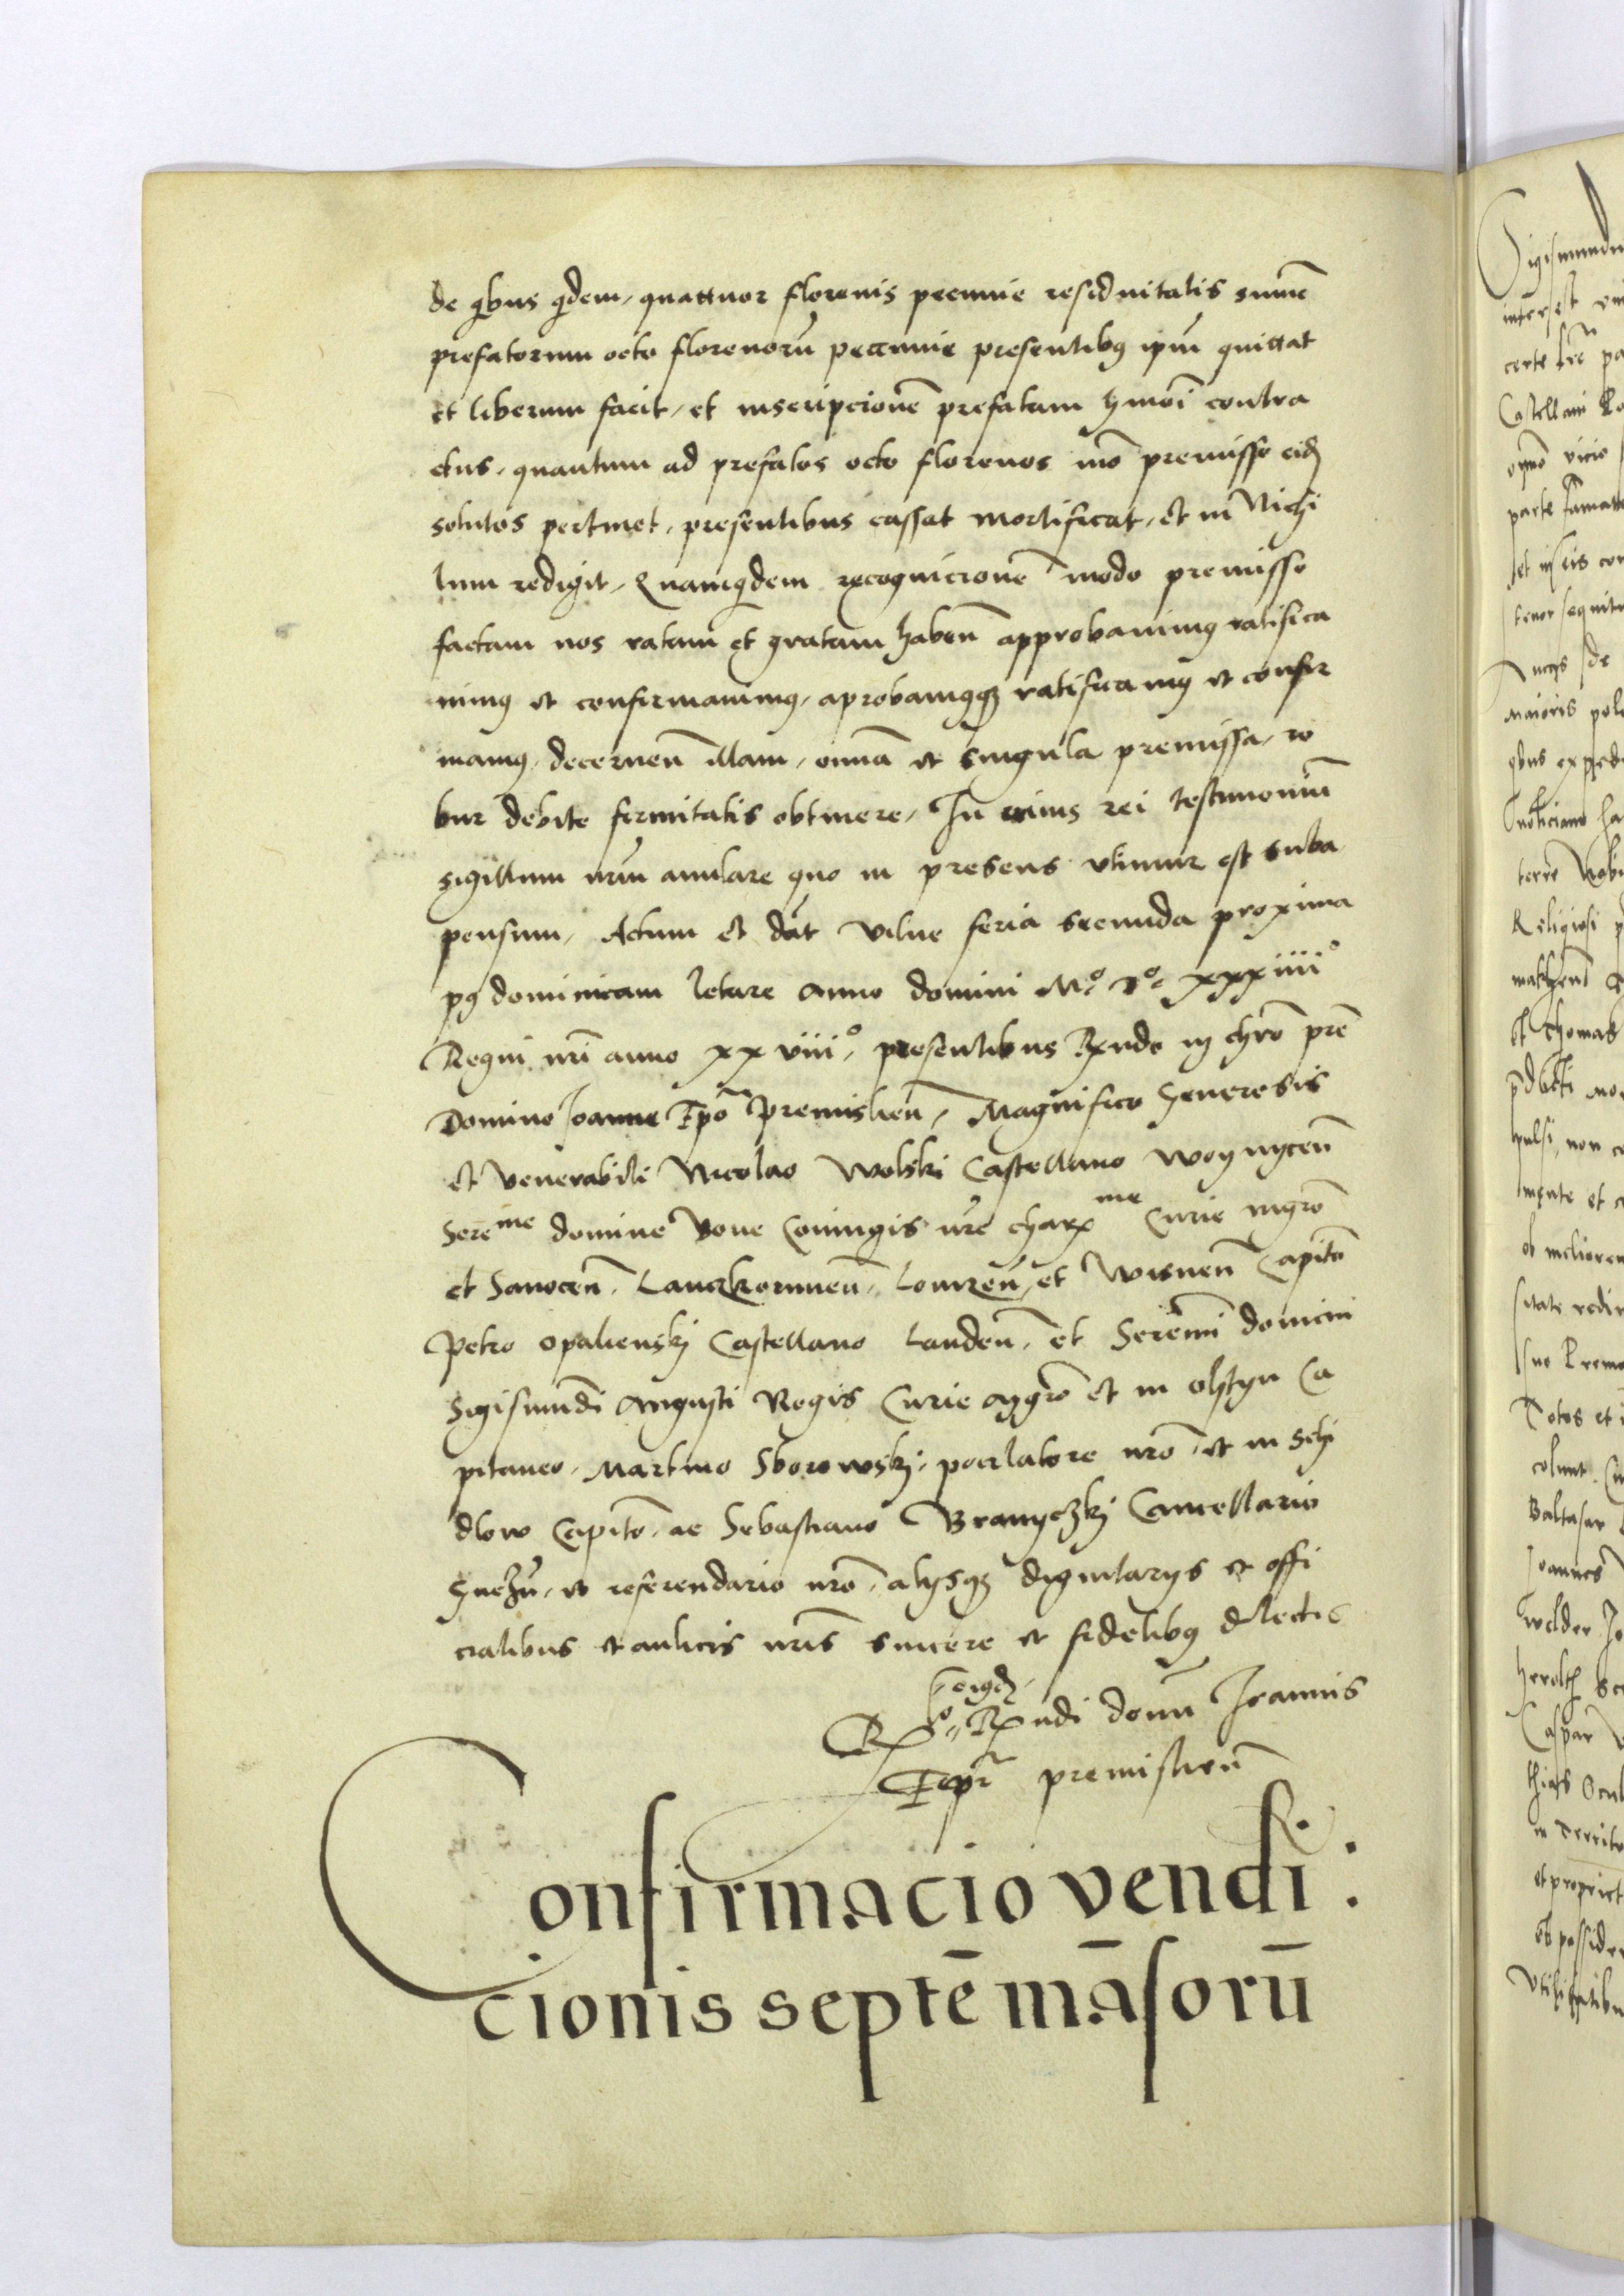 de qbus qdem, quattuor florenis pecunie residuitatis summe
prefatorum octo florenorū peccunie presentibus ipm̄ quittat
et liberum facit, et inscripcionē prefatam hmōi contra
ctus, quantum ad prefatos octo florenos mō premisso eid
solutos pertinet, presentibus cassat mortificat, et in Nichi
lum redigit, Quamqdem recognicionē modo premisso
factam nos ratam et gratam habeñ approbavimus ratifica
vimus et confirmavimus, aprobamusqz ratificamus et confir
mamus, decerneñ illam, omīa et singula premissa, ro
bur debite firmitatis obtinere, In cuius rei testimoniū
sigillum nrm̄ anulare quo in presens utimur est suba
pensum, Actum et dat̄ vilne feria secunda proxima
pg dominicam letare Anno domini Mo Do xxxiiiio
Regni nr̄i anno xxviiio, presentibus Rxndo in chro pr̄e
Domino Joanne Epō Premislieñ, Magnifico Generosis
et venerabili Nicolao Wolski Castellano Woynyceñ
Sereme domine Bone Coniugis nr̄e charxme Curie mgrō
et Sanoceñ, Lanczkorunneñ, Lomzeñ, et Wisneñ Capitō
Petro opalienskj Castellano Landeñ, et Seremi domini
Sigismundi Augusti Regis Curie mgrō et in olstyn Ca
pitaneo, Martino Sborowskj, pocilatore nrō, et in Schi
dlow Capitō, ac Sebastiano Branyczkj Cancellario
Gnezñ, et referendario nrō, alysqz dignitarys et offi
cialibus et aulicis nr̄is sincere et fidelibus dilectis
eiqd
Rxo Rxndi domī Joannis
Epī premislieñ
Confirmacio vendi:
cionis septē māsorū
Sigismundu
interest
certe
Castellani
vicio
parte
tenor sequitu
maioris
Noticiam
terre
Religiosi
et Thomas
non
mente et
ob meliorem
colunt
Baltasar
Joannes
Caspar
et propriet
possider